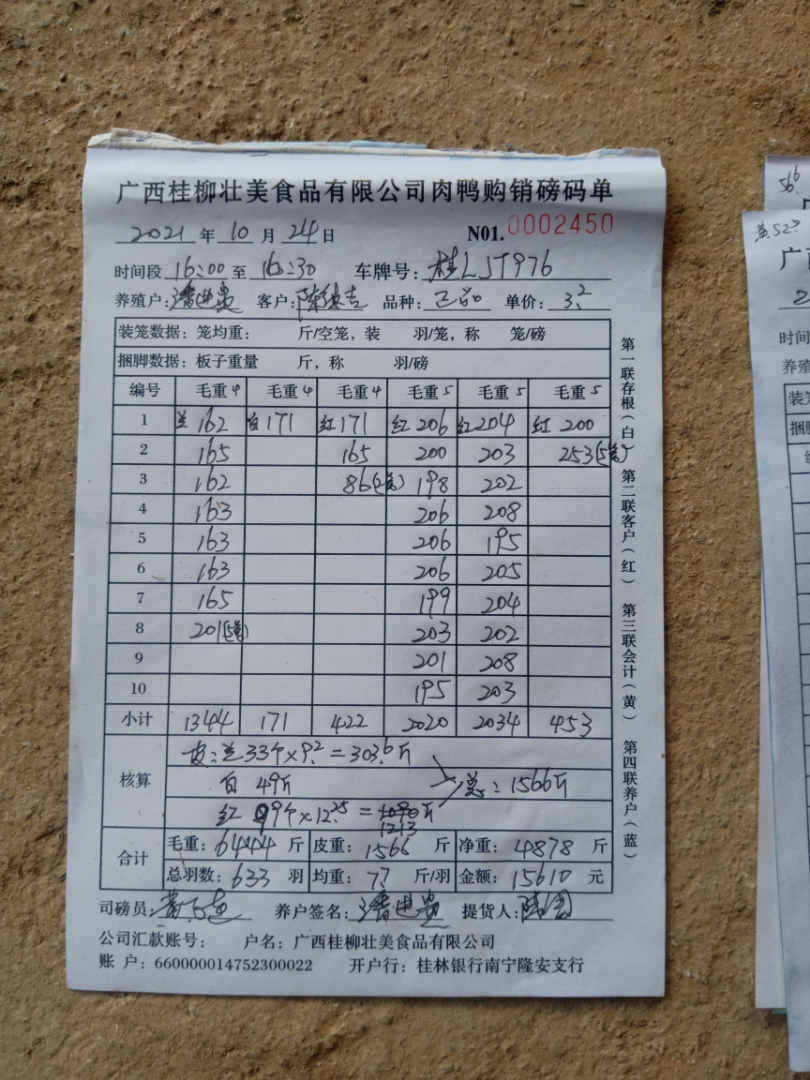 广西桂柳壮美食品有限公司肉鸭购销磅码单
2021年10月24日 N01.0002450
时间段16:00至16:30 车牌号:桂LJT976
养殖户:潘进贵 客户: 品种:正品 单价:3.2
装笼数据:笼均重: 斤/空笼,装 羽/笼,称 笼/磅
捆脚数据:板子重量 斤,称 羽/磅
编号 毛重4 毛重4 毛重4 毛重5 毛重5 毛重5
1 兰162 白171 红171 红206 红204 红200
2 165 165 200 203 253
3 162 86 198 202
4 163 206 208
5 163 206 195
6 163 206 205
7 165 199 204
8 201 203 202
9 201 208
10 195 203
小计 1344 171 422 2020 2034 453
核算 皮:兰33个×9.2=303.6斤
白49斤 总:1566斤
红99个×12.25=1213斤
合计 毛重:6444斤 皮重:1566斤 净重:4878斤
总羽数:633羽 均重:7.7斤/羽 金额:15610元
司磅员: 养户签名:潘进贵 提货人:
公司汇款账号: 户名:广西桂柳壮美食品有限公司
账户:660000014752300022 开户行:桂林银行南宁隆安支行
第一联存根(白) 第二联客户(红) 第三联会计(黄) 第四联养户(蓝)
广西
时间
养殖
装笼
捆脚